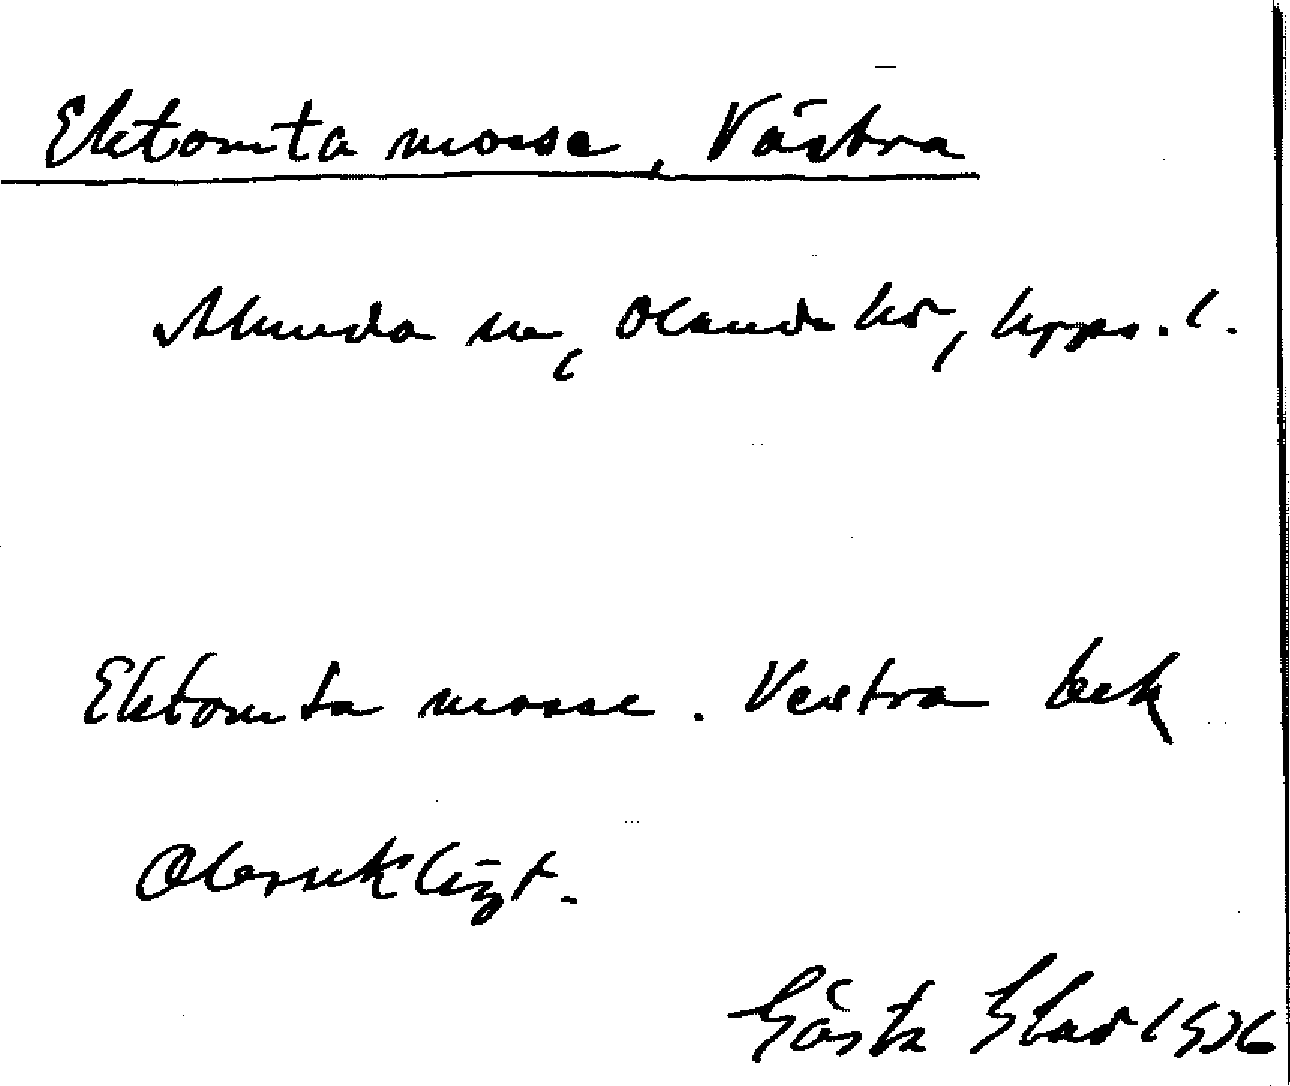 Ektomta mosse, Västra
Almunda sn, Olands hd, Upps. l.
Ektomta mosse. Vestra bek
Obrukligt.
Gösta Ebar 1936